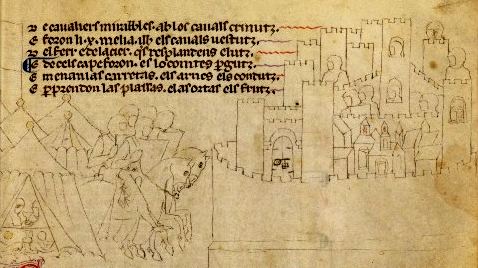 D e cavaliers mirables. ab los cavals crinutz.
E foron li. x. melia. els cavals vestutz.
D el ferr e del acier. qes resplandens e lutz.
E de cels cape foron. es lo comtes ꝑgutz.
E menan las carretas. els arnes els condutz.
E ꝑprendon las plassas. e las ortas els frutz.